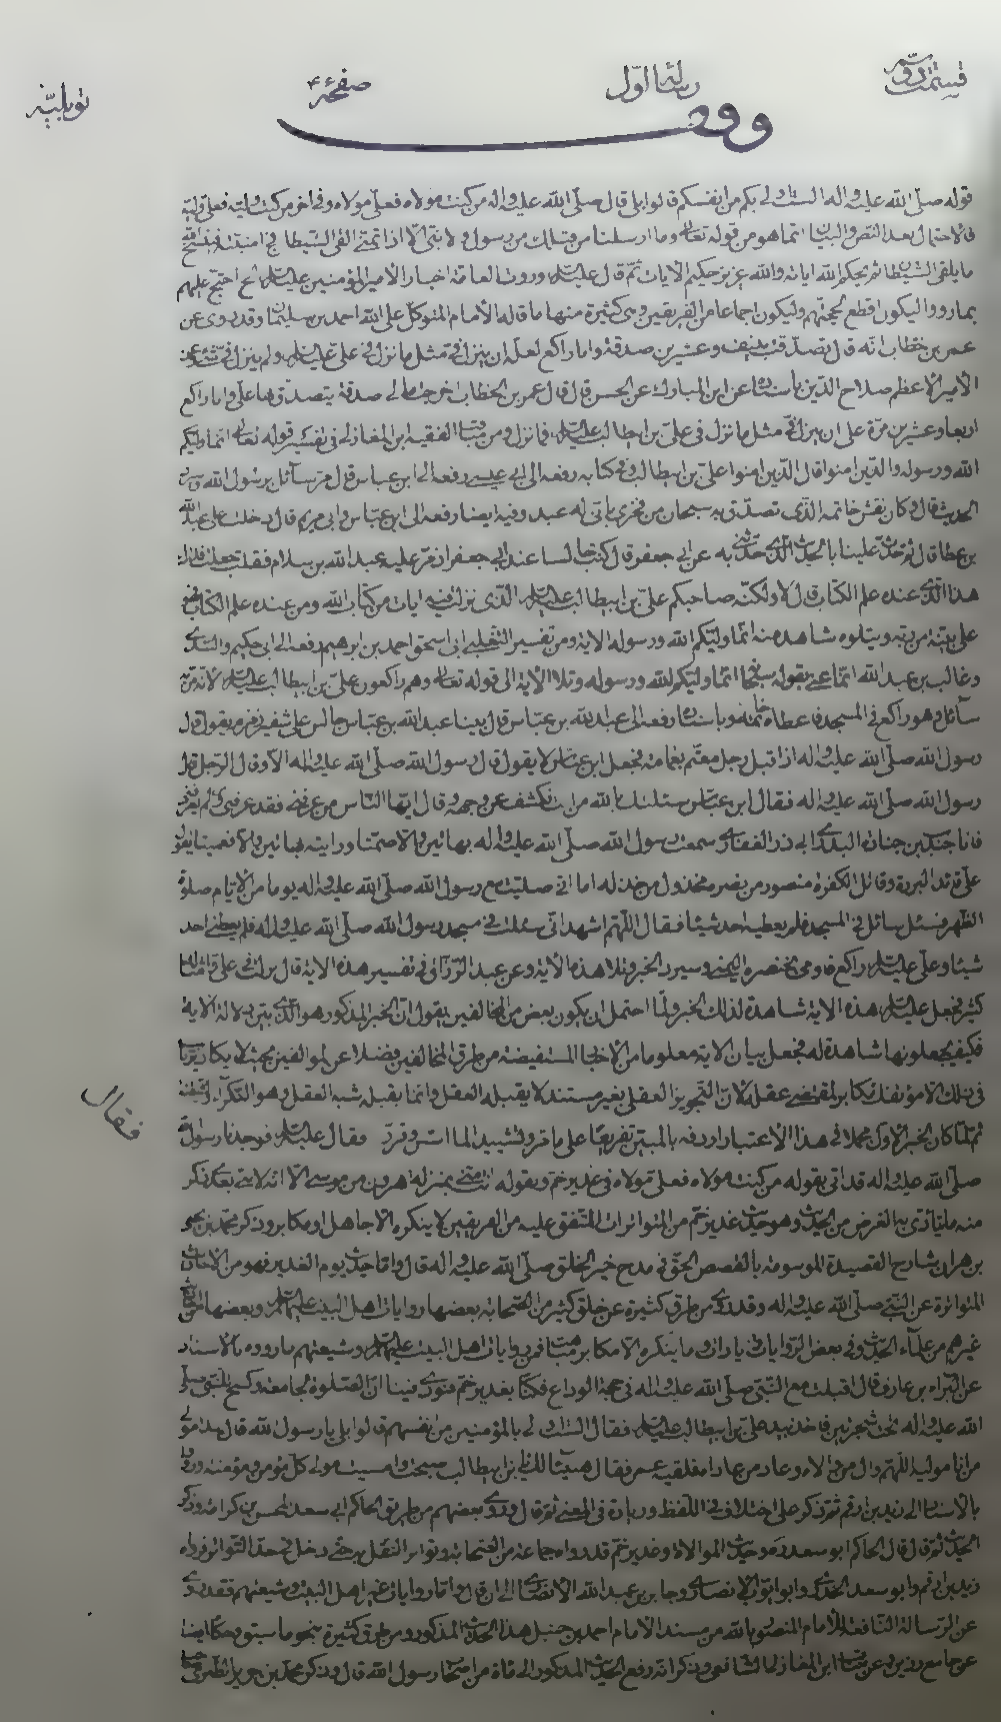 قسمت دوم رسالهٔ اوّل صفحهٔ ۴ توبلیّه
وقف
قوله صلّی الله علیه واله الست اولی بکم من انفسکم قالوا بلی قال صلّی الله علیه واله من کنت مولاه فعلی مولاه وفی اخر من کنت ولیّه فعلی ولیّه
فالاحتمال بعد النص والبیان انما هو من قوله تعالی وما ارسلنا من قبلک من رسول ولا نبیّ الّا اذا تمنّی القی الشیطان فی امنیته فینسخ الله
ما یلقی الشیطان ثم یحکم الله ایاته والله عزیز حکیم الایات ثم قال علیه السلام وروت العامة اخبارا لامیر المؤمنین علیه السلام احتج علیهم
بما رووا لیکون اقطع لحجتهم ولیکون اجماعا من الفریقین وهی کثیرة منها ما قاله الامام المتوکل علی الله احمد بن سلیمان وقد روی عن
عمر بن خطاب انه قال تصدّقت بنیف وعشرین صدقة وانا راکع لعله ان ینزل فیّ مثل ما نزل فی علی علیه السلام ولم ینزل فیّ شیء وعن
الامیر الاعظم صلاح الدین باسناده عن ابن المبارک عن الحسن قال قال عمر بن الخطاب اخرجت من مالی صدقة یتصدّق بها عنّی وانا راکع
اربعا وعشرین مرّة علی ان ینزل فیّ مثل ما نزل فی علی بن ابی طالب علیه السلام فما نزل ومن مناقب الفقیه ابن المغازلی فی تفسیر قوله تعالی انما ولیکم
الله ورسوله والذین امنوا قال الذین امنوا علی بن ابیطالب وفی کتابه رفعه الی رفعه الی ابن عباس قال مرّ سائل برسول الله
الحدیث قال وکان نقش خاتمه الذی تصدّق به سبحان من فخری بانّی له عبد وفیه ایضا رفعه الی ابن عباس وابی مریم قال دخلت علی عبدالله
بن عطا قال حدّث علینا بالحدیث الذی حدثتنی به عن ابی جعفر قال کنت جالسا عند ابی جعفر اذ مرّ علیه عبدالله بن سلام فقلت جعلت فداک
هذا الذی عنده علم الکتاب قال لا ولکنه صاحبکم علی بن ابیطالب علیه السلام الذی نزلت فیه ایات من کتاب الله ومن عنده علم الکتاب
علی بیّنة من ربه ویتلوه شاهد منه انما ولیکم الله ورسوله الایة ومن تفسیر الثعلبی ابی اسحق احمد بن ابرهیم رفعه الی ابن حکیم والسدّی
وغالب بن عبدالله انما عنی بقوله سبحانه انما ولیکم الله ورسوله وتلا الایة الی قوله تعالی وهم راکعون علی بن ابیطالب علیه السلام لانه مرّ به
سائل وهو راکع فی المسجد فاعطاه خاتمه وباسناده رفعه الی عبدالله بن عباس قال بینا عبدالله بن عباس جالس علی شفیر زمزم یقول قال
رسول الله صلّی الله علیه واله اذ اقبل رجل معتمّ بعمامة فجعل ابن عباس لا یقول قال رسول الله صلّی الله علیه واله الّا وقال الرجل قال
رسول الله صلّی الله علیه واله فقال ابن عباس سئلتک بالله من انت فکشف عن وجهه وقال ایها الناس من عرفنی فقد عرفنی ومن لم یعرفنی
فانا جندب بن جنادة البدری ابی ذر الغفاری سمعت رسول الله صلّی الله علیه واله بهاتین والّا صمّتا ورایته بهاتین والّا فعمیتا یقول
علی قائد البررة وقاتل الکفرة منصور من نصره مخذول من خذله اما انی صلیت مع رسول الله صلّی الله علیه واله یوما من الایام صلوة
الظهر فسئل سائل فی المسجد فلم یعطیه احد شیئا فقال اللهم اشهد انی سئلت فی مسجد رسول الله صلّی الله علیه واله فلم یعطنی احد
شیئا وعلی علیه السلام راکع فاومی بخنصره الیمنی وسیرد الخبر وتلا هذه الایة وعن عبد الرزاق فی تفسیر هذه الایة قال نزلت فی علی
کثیر فجعل علیه السلام هذه الایة شاهدة لذلک الخبر ولما احتمل ان یکون بعض من المخالفین یقول ان الخبر المذکور هو الذی یبیّن دلالة الایة
فکیف یجعلونها شاهدة له فجعل بیان الایة معلوما من الاخبار المستفیضة من طرق المخالفین فضلا عن الموالفین بحیث لا یکاد
فی ذلک الامر نفذ مکابر لمقتضی عقله لان التجویز العقلی بغیر مستند لا یقبله العقل وانما یقبله شبه العقل وهو النکراء
ثم لمّا کان الخبر الاول مجملا فی هذا الاعتبار اردفه بالمبیّن تفریعا علی ما قرر وتشییدا لما اسّس وفرد فقال علیه السلام فوجدنا رسول الله
صلّی الله علیه واله قد اتی بقوله من کنت مولاه فعلی مولاه فی غدیر خم وبقوله انت منّی بمنزلة هرون من موسی الّا انه لا نبی بعدی فذکر
منه ما یتأدّی به الغرض من الحدیث وهو حدیث غدیر خم من المتواترات المتفق علیه من الفریقین لا ینکره الا جاهل او مکابر وذکر محمد بن یحیی
بن هران شارح القصیدة الموسومة بالقصص الحق فی مدح خیر الخلق صلّی الله علیه واله قال واما حدیث یوم الغدیر فهو من الاحادیث
المتواترة عن النبی صلّی الله علیه واله وقد روی من طرق کثیرة عن خلق کثیر من الصحابة بعضها روایات اهل البیت علیهم السلام وبعضها
غیرهم من علماء الحدیث وفی بعض الروایات زیادات وما ینکره الا مکابر فمن روایات اهل البیت علیهم السلام وشیعتهم ما رووه بالاسناد
عن البراء بن عازب قال اقبلت مع النبی صلّی الله علیه واله فی حجة الوداع فکنّا بغدیر خم فنودی فینا ان الصلوة جامعة وکسح للنبی صلّی
الله علیه واله تحت شجرتین فاخذ بید علی بن ابیطالب علیه السلام فقال الست اولی بالمؤمنین من انفسهم قالوا بلی یا رسول الله قال هذا مولی
من انا مولیه اللهم وال من والاه وعاد من عاداه فلقیه عمر فقال هنیئا لک یابن ابیطالب اصبحت وامسیت مولی کل مؤمن ومؤمنة وروی
بالاسناد الی زید بن ارقم ثم ذکر علی اختلاف فی اللفظ وزیادة فی المعنی ثم قال وروی بعضهم من طریق الحاکم ابی سعد المحسن بن کرامة وذکر
الحدیث ثم قال قال الحاکم ابو سعد رحمه وحدیث الموالاة وغدیر خم قد رواه جماعة من الصحابة وتواتر النقل به حتی دخل فی حدّ التواتر فرواه
زید بن ارقم وابو سعید الخدری وابو ایوب الانصاری وجابر بن عبدالله الانصاری الی ان قال واما روایات غیر اهل البیت وشیعتهم فقد روی
عن الرسالة النافعة للامام المنصور بالله من مسند الامام احمد بن حنبل هذا الحدیث المذکور من طرق کثیرة بنحو ما سبق وهکذا ایضا
عن جامع رزین وعن مناقب ابن المغازلی الشافعی وذکر انه رفع الحدیث المذکور الی مائة من اصحاب رسول الله قال وذکر محمد بن جریر الطبری
فقال